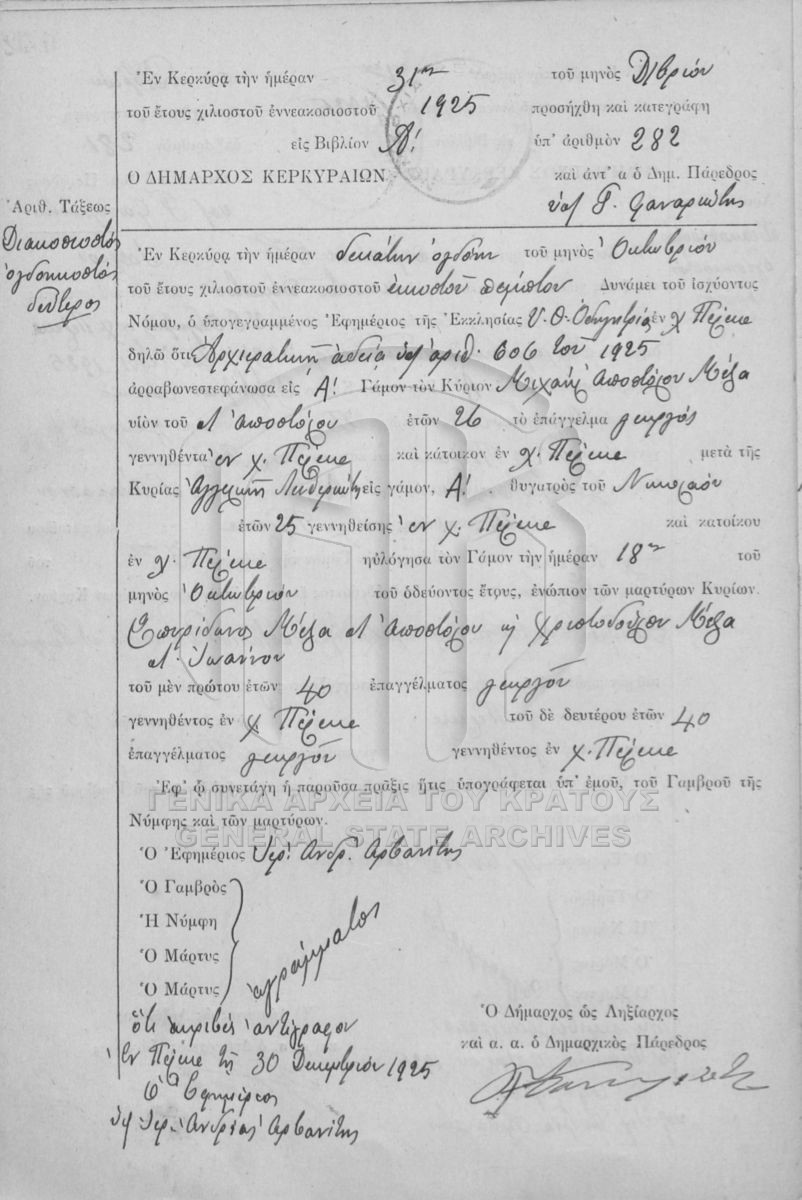 Ἐν Κερκύρᾳ τὴν ἡμέραν 31ην τοῦ μηνὸς Δ/βρίου
τοῦ ἔτους χιλιοστοῦ ἐννεακοσιοστοῦ 1925 προσήχθη καὶ κατεγράφη
εἰς Βιβλίον Α! ὑπ' ἀριθμὸν 282
Ο ΔΗΜΑΡΧΟΣ ΚΕΡΚΥΡΑΙΩΝ καὶ ἀντ' α ὁ Δημ. Πάρεδρος
Ἀριθ. Τάξεως
Διακοσιοστὸς
ὀγδοηκοστὸς
δεύτερος
Ἐν Κερκύρᾳ τὴν ἡμέραν δεκάτην ὀγδόην τοῦ μηνὸς Ὀκτωβρίου
τοῦ ἔτους χιλιοστοῦ ἐννεακοσιοστοῦ εἰκοστοῦ πέμπτου Δυνάμει τοῦ ἰσχύοντος
Νόμου, ὁ ὑπογεγραμμένος Ἐφημέριος τῆς Ἐκκλησίας Υ. Θ. Ὁδηγητρίας ἐν χ. Πέλεκα
δηλῶ ὅτι Ἀρχιερατικῇ ἀδείᾳ ὑπ' ἀριθ. 606 τοῦ 1925
ἀρραβωνεστεφάνωσα εἰς Α! Γάμον τὸν Κύριον Μιχαὴλ Ἀποστόλου Μέξα
υἱὸν τοῦ Ἀποστόλου ἐτῶν 26 τὸ ἐπάγγελμα γεωργός
γεννηθέντα ἐν χ. Πέλεκα καὶ κάτοικον ἐν χ. Πέλεκα μετὰ τῆς
Κυρίας Ἀγγελικῆς εἰς γάμον, Α! . θυγατρὸς τοῦ Νικολάου
ἐτῶν 25 γεννηθείσης ἐν χ. Πέλεκα καὶ κατοίκου
ἐν χ. Πέλεκα ηὐλόγησα τὸν Γάμον τὴν ἡμέραν 18ην τοῦ
μηνὸς Ὀκτωβρίου τοῦ ὁδεύοντος ἔτους, ἐνώπιον τῶν μαρτύρων Κυρίων.
Σπυρίδωνος Μέξα Ἀποστόλου ϗ Χριστοδούλου Μέξα
Ἰωάννου
τοῦ μὲν πρώτου ἐτῶν 40 ἐπαγγέλματος γεωργοῦ
γεννηθέντος ἐν χ. Πέλεκα τοῦ δὲ δευτέρου ἐτῶν 40
ἐπαγγέλματος γεωργοῦ γεννηθέντος ἐν χ. Πέλεκα
Ἐφ' ᾧ συνετάγη ἡ παροῦσα πρᾶξις ἥτις ὑπογράφεται ὑπ' ἐμοῦ, τοῦ Γαμβροῦ τῆς
ΓΕΝΙΚΑ ΑΡΧΕΙΑ ΤΟΥ ΚΡΑΤΟΥΣ
Νύμφης καὶ τῶν μαρτύρων.
GENERAL STATE ARCHIVES
Ὁ Ἐφημέριος Ἱερ. Ἀνδρ. Ἀρβανίτης
Ὁ Γαμβρὸς
Ἡ Νύμφη
Ὁ Μάρτυς
Ὁ Μάρτυς
ἀγράμματοι
Ὅτι ἀκριβὲς ἀντίγραφον
Ἐν Πέλεκα τῇ 30 Δεκεμβρίου 1925
Ὁ Ἐφημέριος
Ἱερ. Ἀνδρέας Ἀρβανίτης
Ὁ Δήμαρχος ὡς Ληξίαρχος
καὶ α. α. ὁ Δημαρχικὸς Πάρεδρος